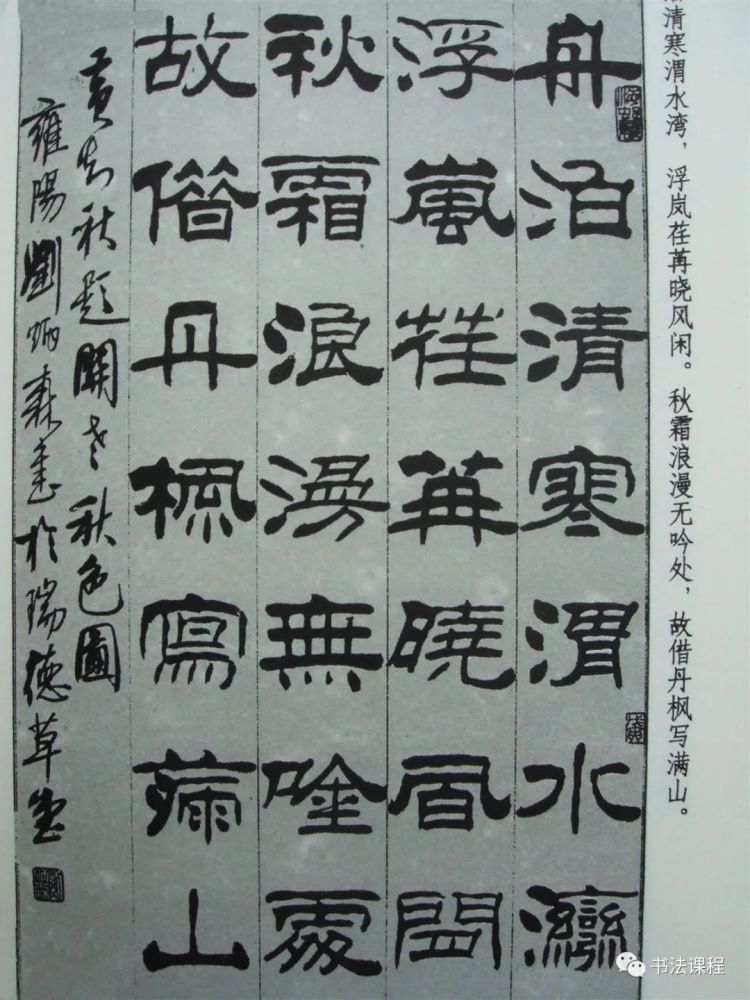 清寒渭水湾，浮岚荏苒晓风闲。秋霜浪漫无吟处，故借丹枫写满山。
舟泊清寒渭水灣
浮嵐荏苒曉風閒
秋霜浪漫無唫處
故借丹楓寫滿山
黃知秋題關秋色圖
雍陽劉炳森書於瑞德草堂
书法课程